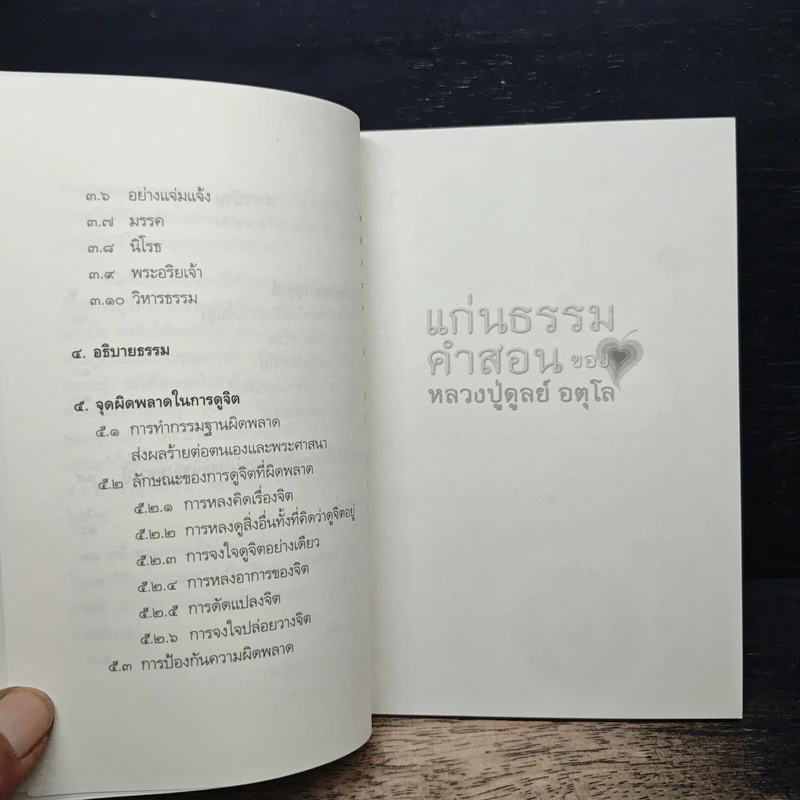 ๓.๖ อย่างแจ่มแจ้ง
๓.๗ มรรค
๓.๘ นิโรธ
๓.๙ พระอริยเจ้า
๓.๑๐ วิหารธรรม
๔. อธิบายธรรม
๕. จุดผิดพลาดในการดูจิต
๕.๑ การทำกรรมฐานผิดพลาด
ส่งผลร้ายต่อตนเองและพระศาสนา
๕.๒ ลักษณะของการดูจิตที่ผิดพลาด
๕.๒.๑ การหลงคิดเรื่องจิต
๕.๒.๒ การหลงดูสิ่งอื่นทั้งที่คิดว่าดูจิตอยู่
๕.๒.๓ การจงใจดูจิตอย่างเดียว
๕.๒.๔ การหลงอาการของจิต
๕.๒.๕ การดัดแปลงจิต
๕.๒.๖ การจงใจปล่อยวางจิต
๕.๓ การป้องกันความผิดพลาด
แก่นธรรม
คำสอน ของ
หลวงปู่ดูลย์ อตุโล